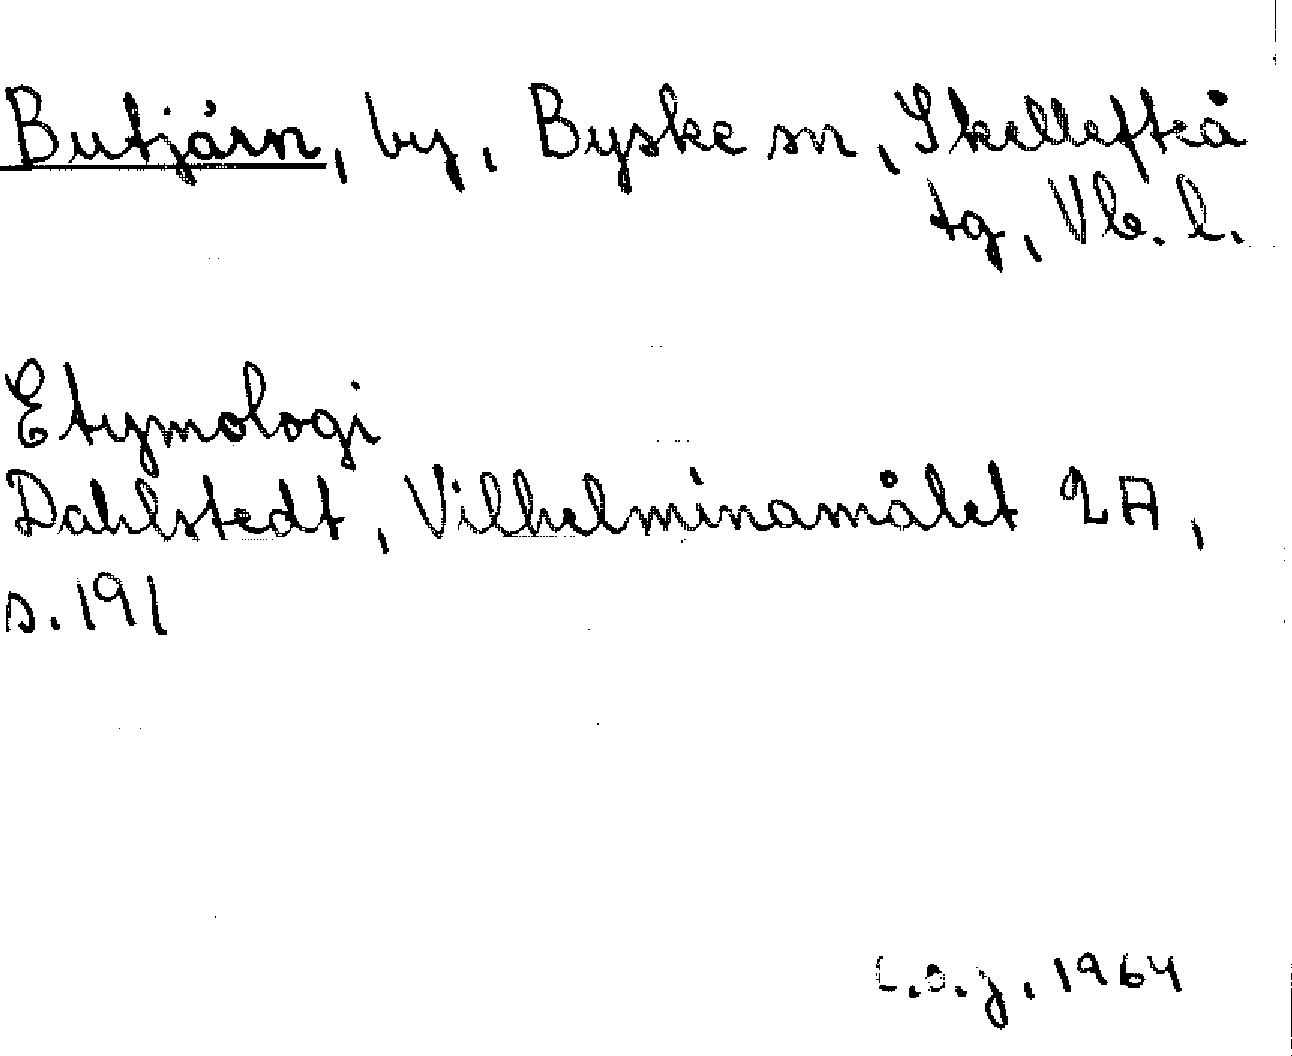 Butjärn, by, Byske sn, Skellefteå
tg, Vb. l.
Etymologi
Dahlstedt, Vilhelminamålet 2A,
s. 191
L.O.J. 1964